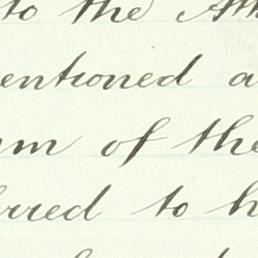 to the Att
entioned a
um of the
rred to h